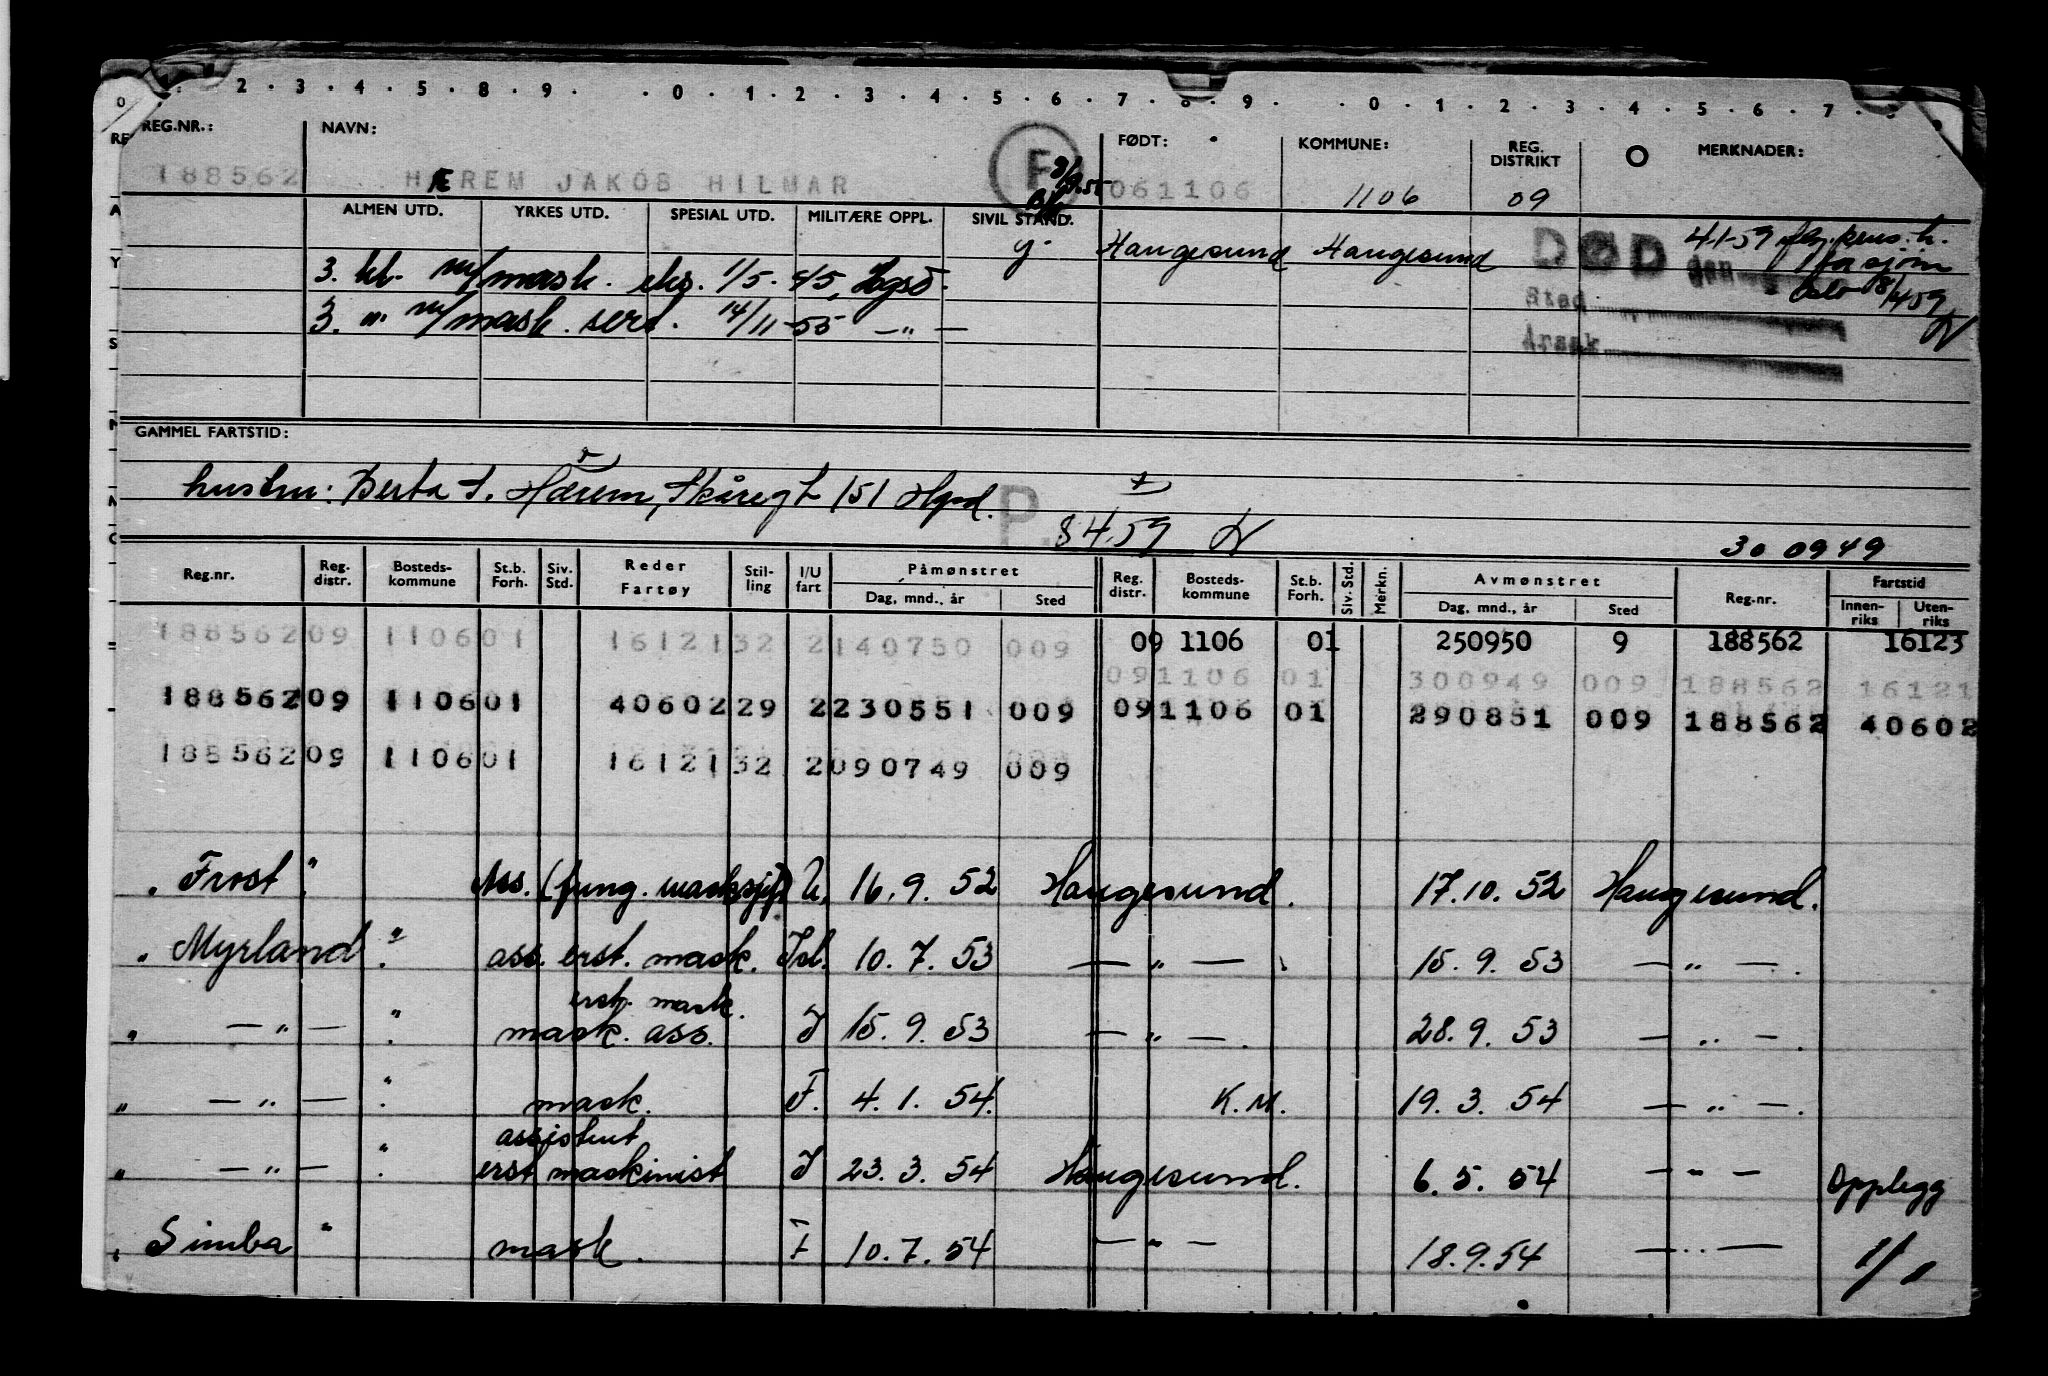 2 . 3 . 4 . 5 . 8 . 9 . . 0 . 1 . 2 . 3 . 4 . 5 . 6 . 7 . 8 . 9 . . 0 . 1 . 2 . 3 . 4 . 5 . 6 . 7 .
REG.NR.: NAVN: FØDT: KOMMUNE: REG. DISTRIKT MERKNADER:
188562 HÆREM JAKOB HILMAR F 061106 1106 09
ALMEN UTD. YRKES UTD. SPESIAL UTD. MILITÆRE OPPL. SIVIL STAND.
g. Haugesund Haugesund DØD den 4-1-59
3. kl. m/mask. eks. 1/5-45, Hgsd. Oslo 18/4 59
Sted
3. " m/mask. sert. 14/11-55 — " —
Årsak
GAMMEL FARTSTID:
hustru: Berta S. Hærem, Skåregt 151 Hgsd. P.
8 4. 59
30 09 49
Reg.nr. Reg. distr. Bosteds-kommune St.b. Forh. Siv. Std. Reder Fartøy Stil-ling I/U fart Påmønstret Dag, mnd., år Sted Reg. distr. Bosteds-kommune St.b. Forh. Siv. Std. Merkn. Avmønstret Dag, mnd., år Sted Reg.nr. Fartstid Innen-riks Uten-riks
188562 09 1106 01 16121 32 2 140750 009 09 1106 01 250950 9 188562 16123
09 1106 01 300949 009 188562 16121
188562 09 1106 01 40602 29 2 230551 009 09 1106 01 290851 009 188562 40602
188562 09 1106 01 16121 32 2 090749 009
" Frost " Ass. (fung. masksjef) U. 16. 9. 52 Haugesund. 17. 10. 52 Haugesund.
" Myrland " ass. erst. mask. Isl. 10. 7. 53 — " — . 15. 9. 53 — " — .
erst. mask.
" — " — " mask. ass. I 15. 9. 53 — " — . 28. 9. 53 — " — .
" — " — " mask. F. 4. 1. 54. K. M. 19. 3. 54 — " — .
assistent
" — " — " erst maskinist I 23. 3. 54 Haugesund. 6. 5. 54 — " — Opplegg
" Simba " mask. F 10. 7. 54 — " — 18. 9. 54 — " —